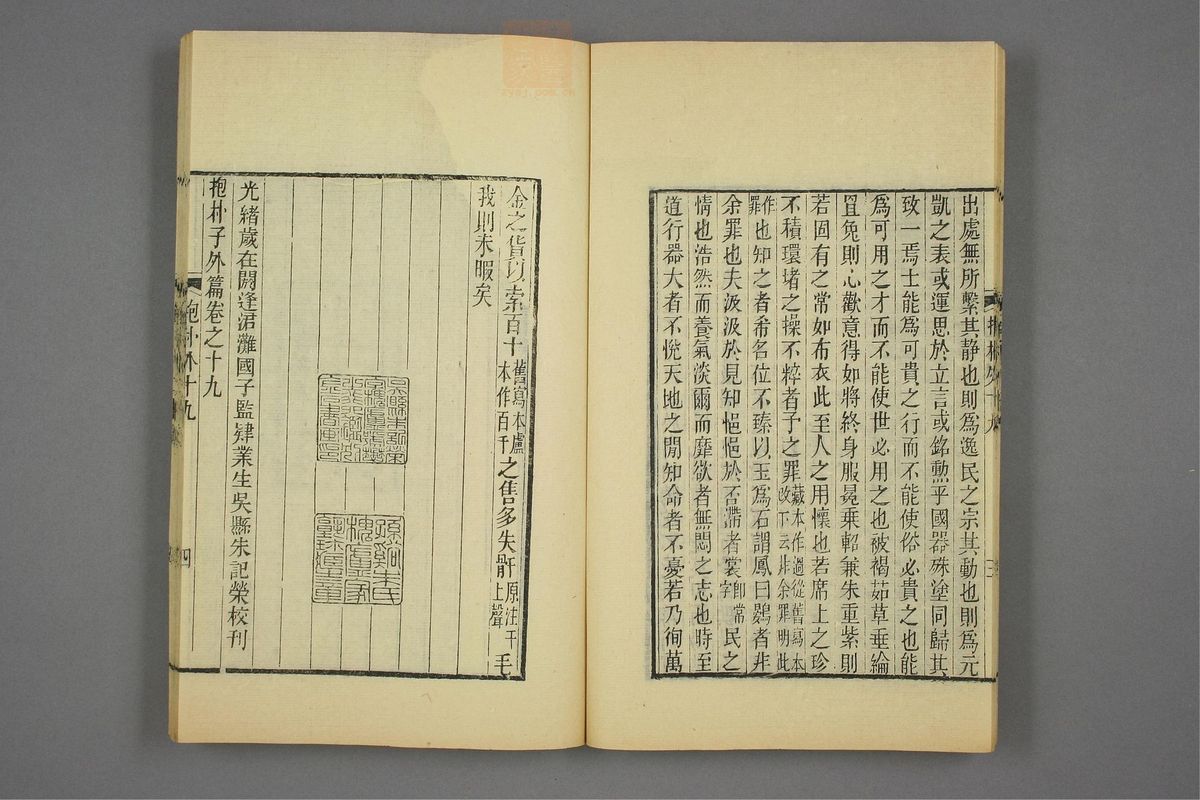 出處無所繫其静也則為逸民之宗其動也則為元
凱之表或運思於立言或銘勲乎國器殊塗同歸其
致一焉士能為可貴之行而不能使俗必貴之也能
為可用之才而不能使世必用之也被褐茹草垂綸
罝兔則心歡意得如將終身服冕乗軺兼朱重紫則
若固有之常如布衣此至人之用懷也若席上之珍
不積環堵之操不粹者予之罪藏本作過從舊寫本改下云非余罪明此
作罪也知之者希名位不臻以玉為石謂鳳曰鷃者非
余罪也夫汲汲於見知悒悒於否滯者裳即常字民之
情也浩然而養氣淡爾而靡欲者無悶之志也時至
道行器大者不悅天地之閒知命者不憂若乃徇萬
金之貨以索百十舊寫本盧本作百千之售多失骭原注干上聲毛
我則未暇矣
孫谿朱氏
槐廬家
塾珍臧
光緒歲在閼逢涒灘國子監肄業生吳縣朱記榮校刊
抱朴子外篇卷之十九
抱朴外十九
四